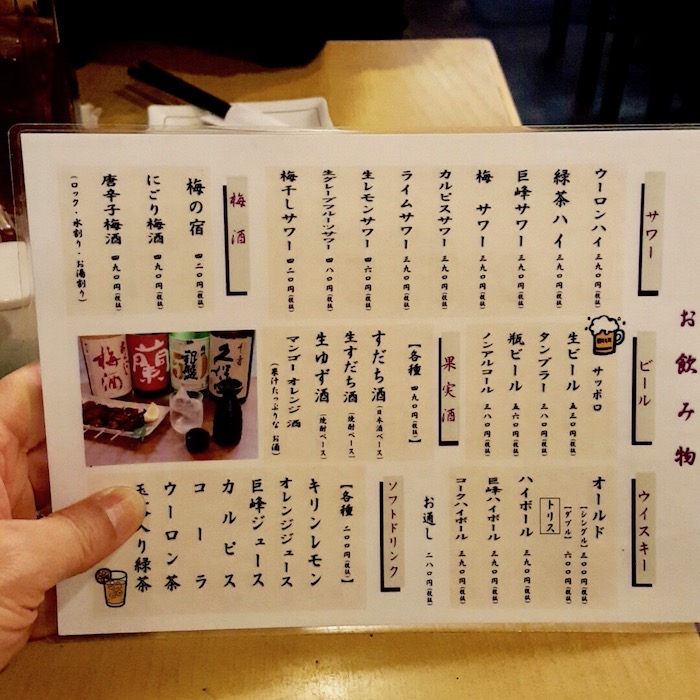 お飲み物
サワー
ウーロンハイ 三九〇円(税抜)
緑茶ハイ 三九〇円(税抜)
巨峰サワー 三九〇円(税抜)
梅サワー 三九〇円(税抜)
カルピスサワー 三九〇円(税抜)
ライムサワー 三九〇円(税抜)
生レモンサワー 四六〇円(税抜)
生グレープフルーツサワー 四八〇円(税抜)
梅干しサワー 四二〇円(税抜)
梅酒
梅の宿 四二〇円(税抜)
にごり梅酒 四九〇円(税抜)
唐辛子梅酒 四九〇円(税抜)
(ロック・水割り・お湯割り)
ビール
サッポロ
生ビール 五二〇円(税抜)
タンブラー 三八〇円(税抜)
瓶ビール 五六〇円(税抜)
ノンアルコール 三八〇円(税抜)
果実酒
【各種 四九〇円(税抜)】
すだち酒(日本酒ベース)
生すだち酒(焼酎ベース)
生ゆず酒(焼酎ベース)
マンゴーオレンジ酒
(果汁たっぷりなお酒)
梅酒
蘭
銀盤
久保田
ウイスキー
オールド
【シングル】三〇〇円(税抜)
【ダブル】六〇〇円(税抜)
トリス
ハイボール 三九〇円(税抜)
巨峰ハイボール 三九〇円(税抜)
コークハイボール 三九〇円(税抜)
お通し 二八〇円(税抜)
ソフトドリンク
【各種 二〇〇円(税抜)】
キリンレモン
オレンジジュース
巨峰ジュース
カルピス
コーラ
ウーロン茶
入り緑茶